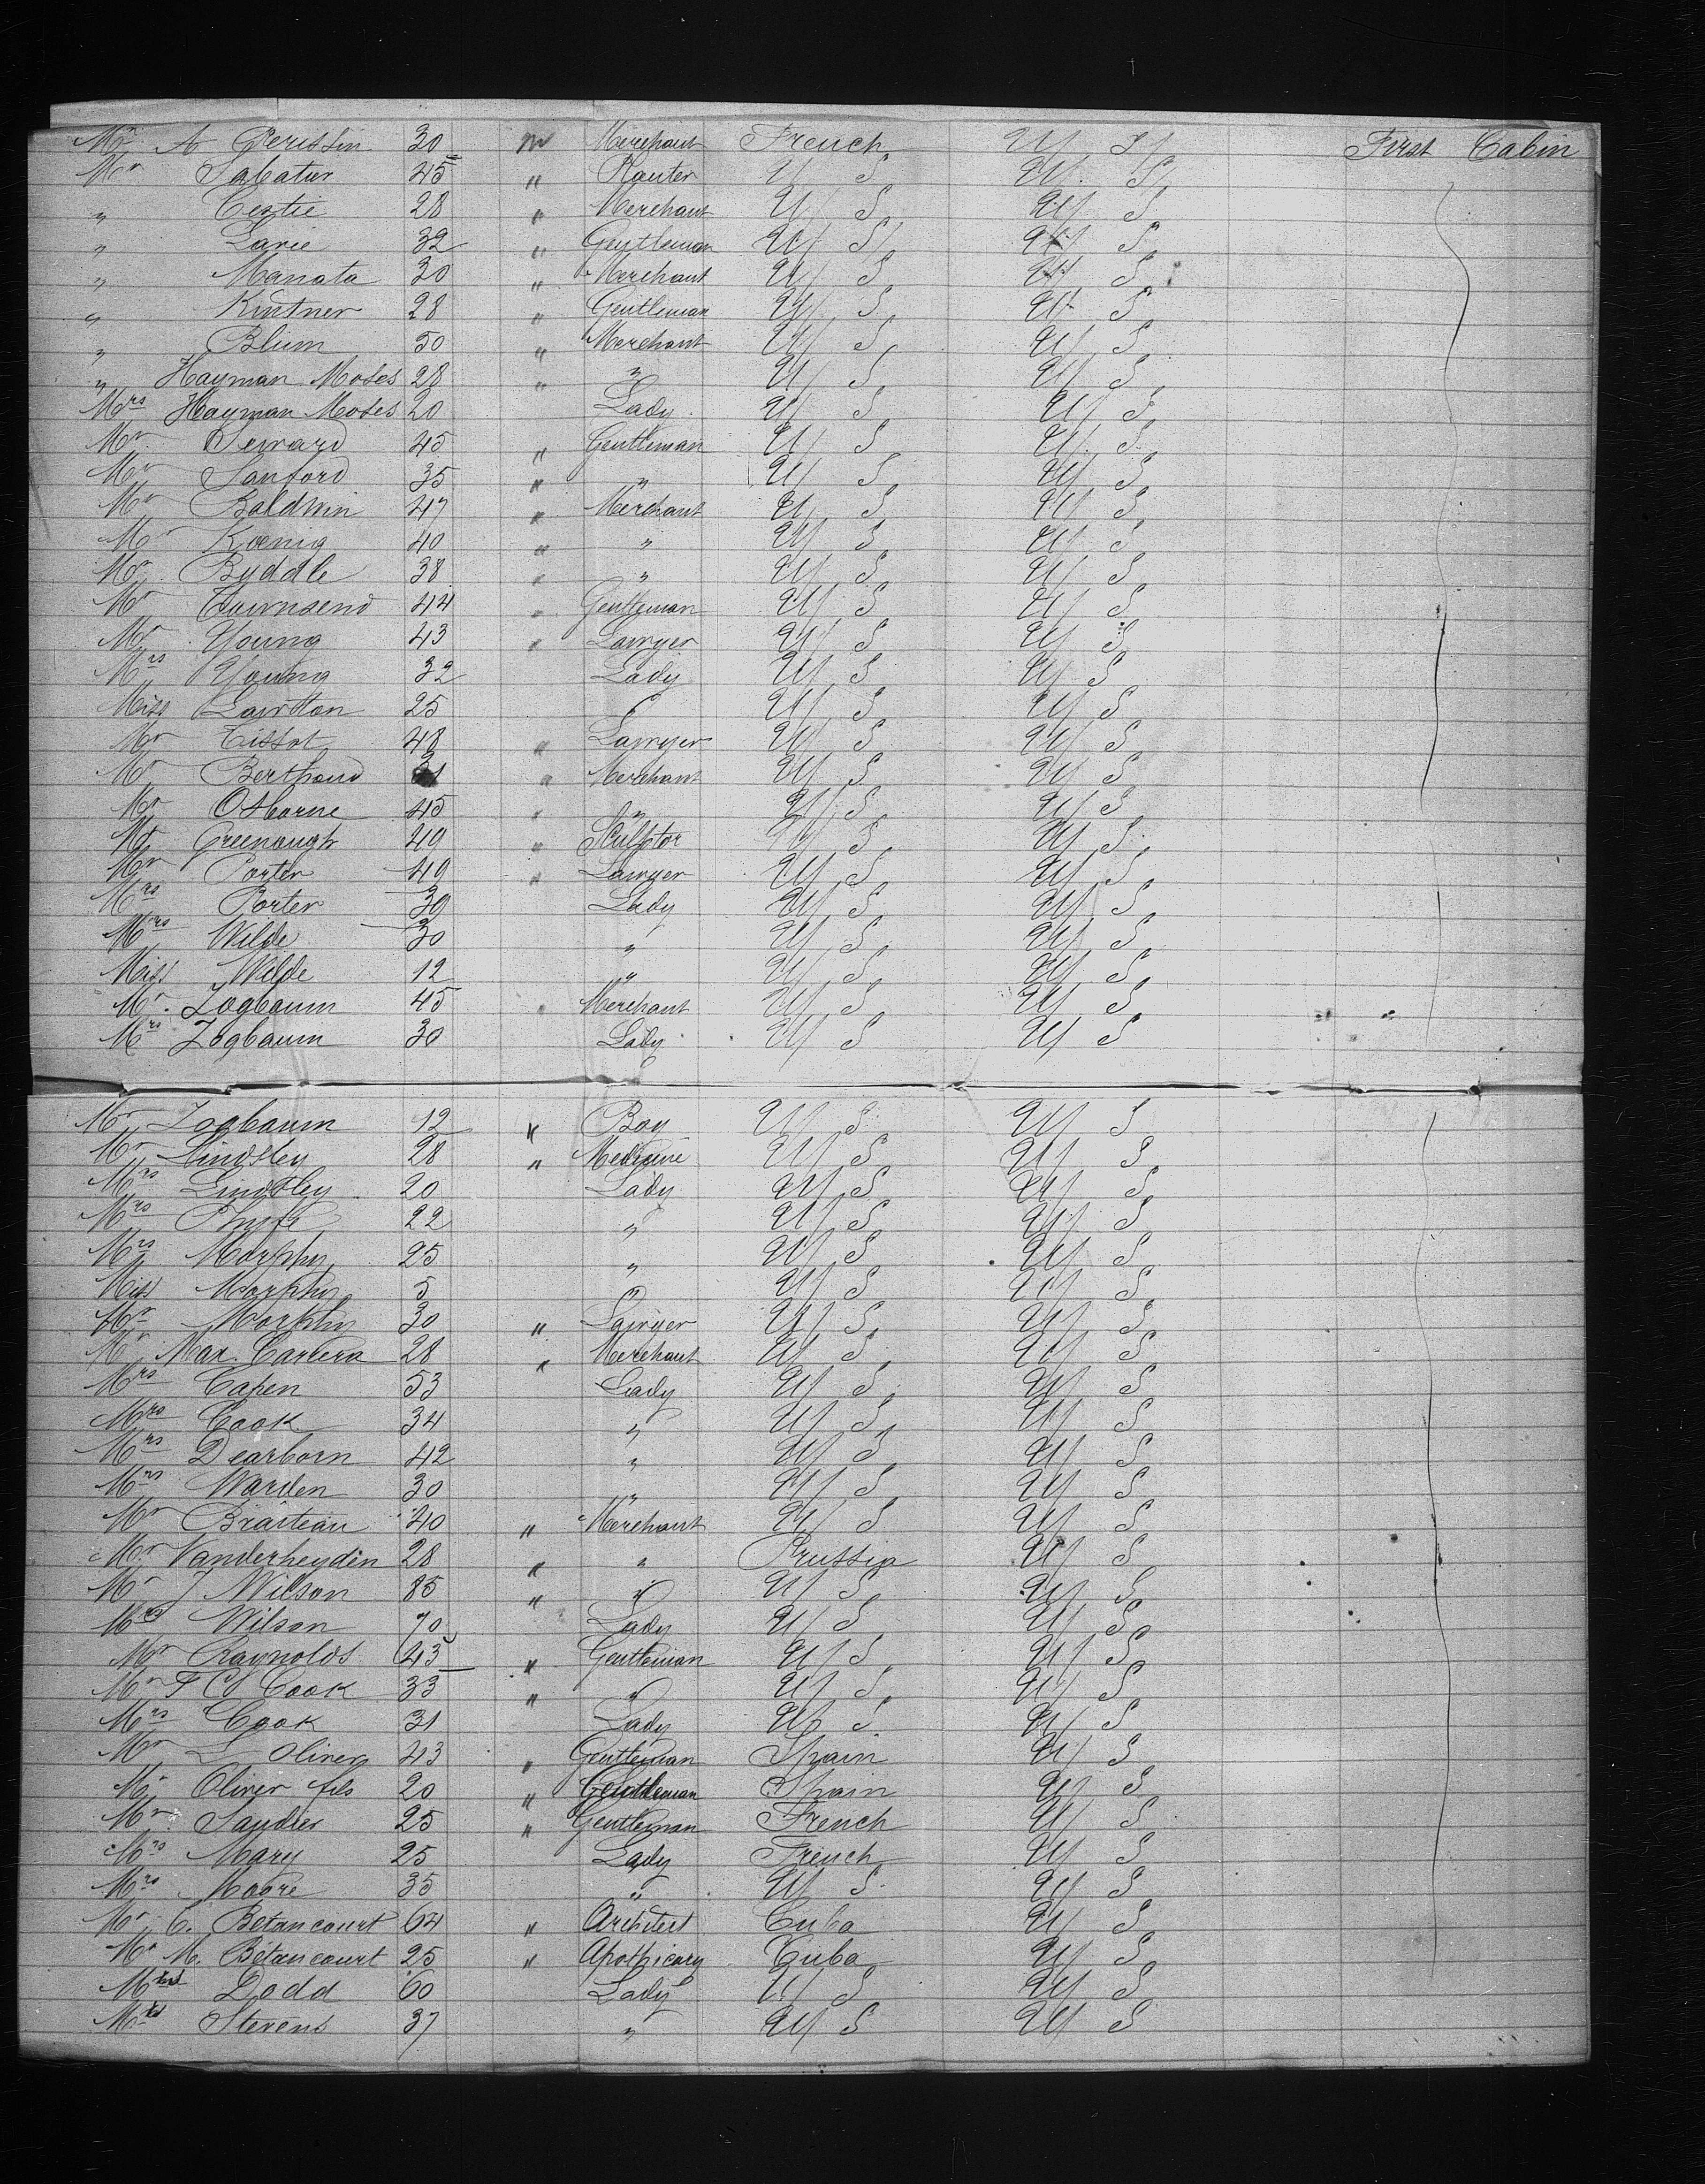 Mr A Perussin 30 m Merchant French U S First Cabin
Mr Sabatur 45 " Planter U S U S
" Cestie 28 " Merchant U S U S
" Larie 32 " Gentleman U S U S
" Manata 30 " Merchant U S U S
" Kintner 28 " Gentleman U S U S
" Blum 50 " Merchant U S U S
" Hayman Moses 28 " " U S U S
Mrs Hayman Moses 20 Lady U S U S
Mr Seward 45 " Gentleman U S U S
Mr Sanford 35 " " U S U S
Mr Baldwin 47 " Merchant U S U S
Mr Kœnig 40 " " U S U S
Mr Byddle 38 " " U S U S
Mr Townsend 44 " Gentleman U S U S
Mr Young 43 " Lawyer U S U S
Mrs Young 32 Lady U S U S
Miss Lawtton 25 " U S U S
Mr Tissot 48 " Lawyer U S U S
Mr Berthoud " Merchant U S U S
Mr Osborne 45 " " U S U S
Mr Greenough 49 " Sculptor U S U S
Mr Porter 49 " Lawyer U S U S
Mrs Porter 39 Lady U S U S
Mrs Wilde 30 " U S U S
Miss Wilde 12 " U S U S
Mr Zogbaum 45 " Merchant U S U S
Mrs Zogbaum 30 Lady U S U S
Mr Zogbaum 12 " Boy U S U S
Mr Lindsley 28 " Medicine U S U S
Mrs Lindsley 20 Lady U S U S
Mrs Phyfe 22 " U S U S
Mrs Morphy 25 " U S U S
Miss Morphy 5 " U S U S
Mr Morphy 30 " Lawyer U S U S
Mr Max. Carrera 28 " Merchant U S U S
Mrs Capen 53 Lady U S U S
Mrs Cook 34 " U S U S
Mrs Dearborn 42 " U S U S
Mrs Warden 30 " U S U S
Mr Braiteau 40 " Merchant U S U S
Mr Vanderheyden 28 " " Prussia U S
Mr J Wilson 85 " " U S U S
Mrs Wilson 70 Lady U S U S
Mr Raynolds 43 " Gentleman U S U S
Mr F C Cook 33 " " U S U S
Mrs Cook 31 Lady U S U S
Mr L Oliver 43 " Gentleman Spain U S
Mr Oliver fils 20 " Gentleman Spain U S
Mr Sandier 25 " Gentleman French U S
Mrs Mary 25 Lady French U S
Mrs Moore 35 " U S U S
Mr C. Betancourt 64 " Architect Cuba U S
Mr M. Betancourt 25 " Apothicary Cuba U S
Dodd 60 Lady U S U S
Stevens 37 " U S U S